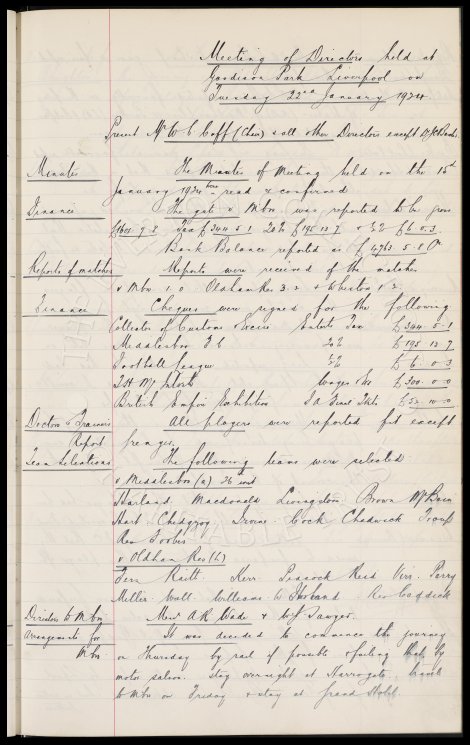 Meeting of Directors held at
Goodison Park Liverpool on
Tuesday 22nd January 1924.
Present Mr W. C. Cuff (Chair) & all other Directors except
Minutes
The Minutes of Meeting held on the 15th
January 1924 were read & confirmed
Finance
The gate v Mbro was reported to be gross
Tax £344.5.1 20% £195.13.7 £6.0.3.
Bank Balance reported as £4763.5.8
Reports of matches
Reports were received of the matches
v Mbro 1.0 Oldham Res 3.2 & Wheeton
Finance
Cheques were signed for the following
Collector of Customs & Excise Entets Tax £344.5.1
Middlesbro F C 20% £195.13.7
Football League £6.0.3
T H McIntosh Wages &c £300.0.0
British Empire Exhibition F A Final Tkts
Doctor & Trainers
Report
All players were reported fit except
Team Selections
The following teams were selected
v Middlesbro (a) 26 inst
Harland Macdonald Livingston Brown McBain
Hart Chedgzoy Irvine Cock Chadwick Troup
Res Forbes
v Oldham Res (h)
Fern Raitt Kerr Peacock Reid Virr Parry
Miller Wall Williams Res Caddick
Directors to Mbro
Messrs A R Wade & W J Sawyer.
Arrangements for
Mbro
It was decided to commence the journey
on Thursday by rail if possible & failing that by
motor saloon. stay overnight at Harrogate, travel
to Mbro on Friday & stay at Grand Hotel